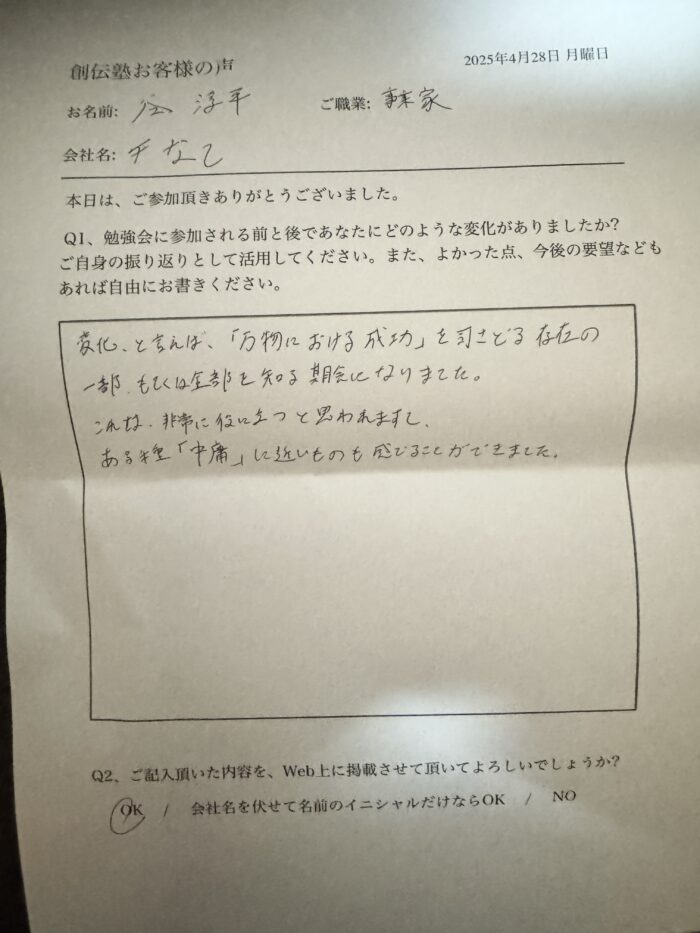 創伝塾お客様の声
2025年4月28日 月曜日
お名前: 淳平 ご職業: 事業家
会社名: なし
本日は、ご参加頂きありがとうございました。
Q1、勉強会に参加される前と後であなたにどのような変化がありましたか?
ご自身の振り返りとして活用してください。また、よかった点、今後の要望なども
あれば自由にお書きください。
変化、と言えば、「万物における成功」を司さどる存在の
一部、もしくは全部を知る機会になりました。
これは、非常に役に立つと思われますし、
ある種「中庸」に近いものも感じることができました。
Q2、ご記入頂いた内容を、Web上に掲載させて頂いてよろしいでしょうか?
OK / 会社名を伏せて名前のイニシャルだけならOK / NO